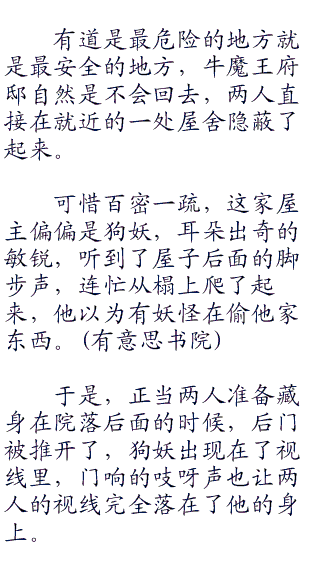 有道是最危险的地方就
是最安全的地方，牛魔王府
邸自然是不会回去，两人直
接在就近的一处屋舍隐蔽了
起来。
可惜百密一疏，这家屋
主偏偏是狗妖，耳朵出奇的
敏锐，听到了屋子后面的脚
步声，连忙从榻上爬了起
来，他以为有妖怪在偷他家
东西。(有意思书院)
于是，正当两人准备藏
身在院落后面的时候，后门
被推开了，狗妖出现在了视
线里，门响的吱呀声也让两
人的视线完全落在了他的身
上。